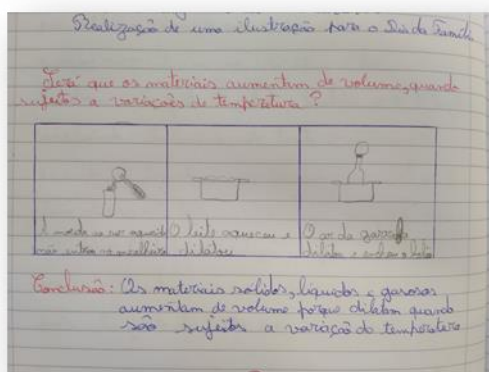 Realização de uma ilustração para o Dia da Família
Será que os materiais aumentam de volume, quando
sujeitos a variações de temperatura?
A moeda ao ser
não entra no mealheiro
O leite aqueceu e
dilatou
O ar da garrafa
dilatou e encheu o balão
Conclusão: Os materiais solidos, líquidos e gasosos
aumentam de volume porque dilatam quando
são sujeitos a variação de temperatura